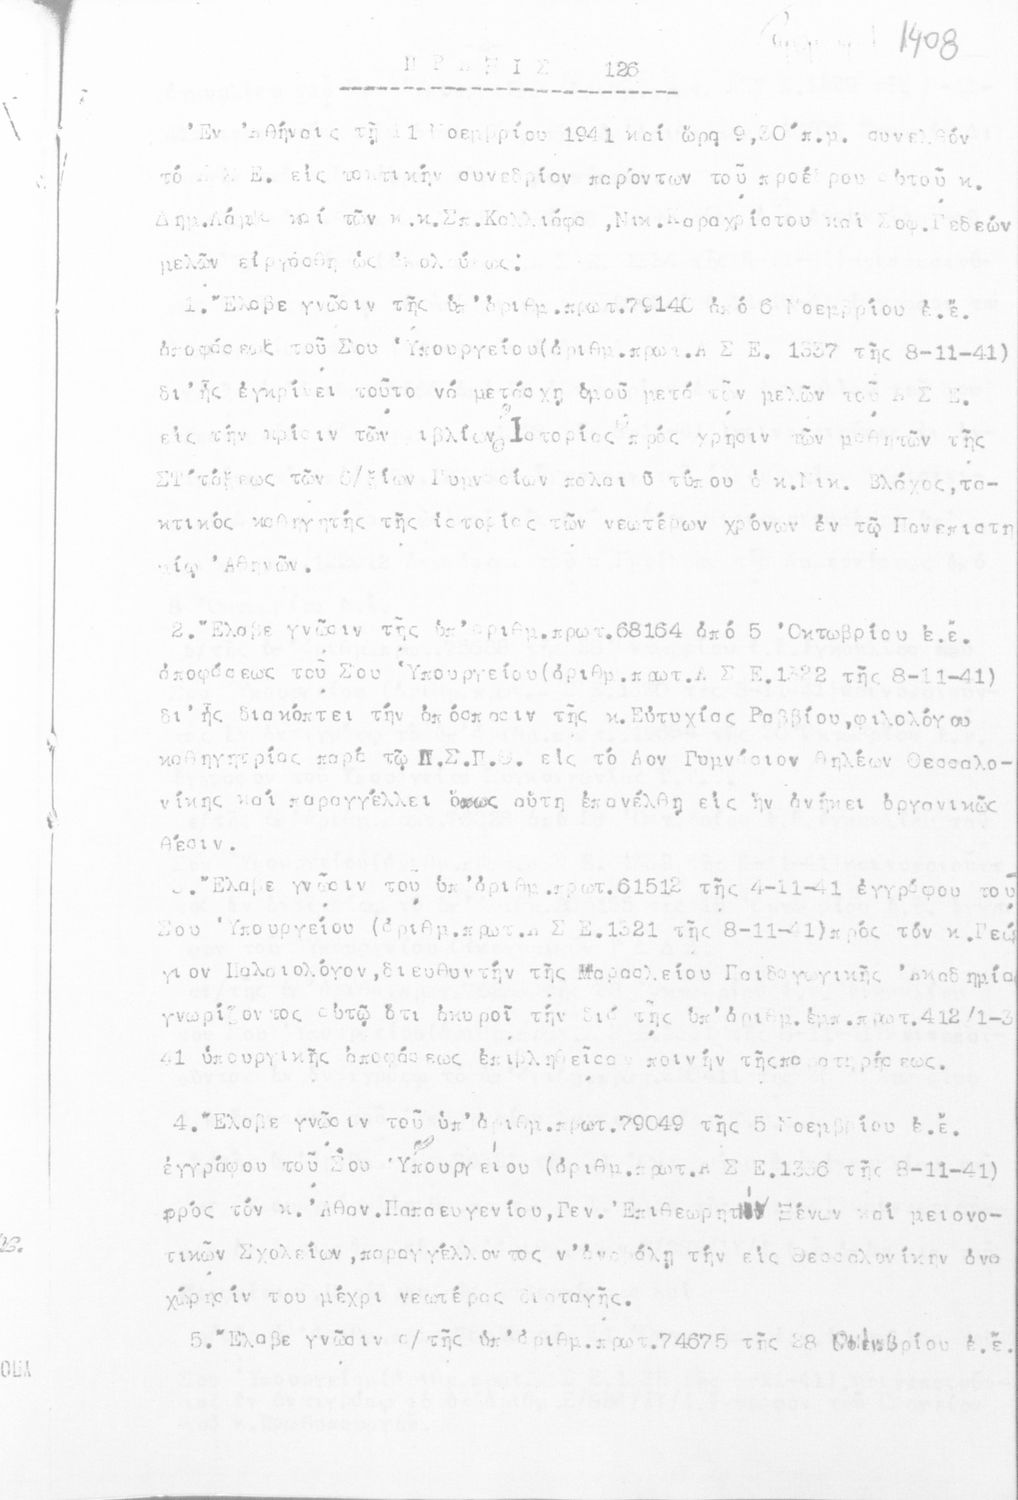 1408
Π Ρ Α Ξ Ι Σ 126
Ἐν Ἀθήναις τῇ 11 Νοεμβρίου 1941 καί ὥρᾳ 9,30 π.μ. συνελθόν
τό Α Σ Ε. εἰς τακτικήν συνεδρίαν παρόντων τοῦ προέδρου αὐτοῦ κ.
Δημ.Λάμψα καί τῶν κ.κ.Σπ.Καλλιάφα ,Νικ.Καραχρίστου καί Σοφ.Γεδεών
μελῶν εἰργάσθη ὡς ἀκολούθως:
1.Ἔλαβε γνῶσιν τῆς ὑπ'ἀριθμ.πρωτ.79140 ἀπό 6 Νοεμβρίου ἐ.ἔ.
ἀποφάσεως τοῦ Σου Ὑπουργείου(ἀριθμ.πρωτ.Α Σ Ε. 1337 τῆς 8-11-41)
δι'ἧς ἐγκρίνει τοῦτο νά μετάσχῃ ὁμοῦ μετά τῶν μελῶν τοῦ Α Σ Ε.
εἰς τήν κρίσιν τῶν βιβλίων Ἱστορίας πρός χρῆσιν τῶν μαθητῶν τῆς
ΣΤ'τάξεως τῶν 6/ξίων Γυμνασίων παλαι ῦ τύπου ὁ κ.Νικ. Βλάχος,τα-
κτικός καθηγητής τῆς ἱστορίας τῶν νεωτέρων χρόνων ἐν τῷ Πανεπιστη
μίῳ Ἀθηνῶν.
2.Ἔλαβε γνῶσιν τῆς ὑπ'ἀριθμ.πρωτ.68164 ἀπό 5 Ὀκτωβρίου ἐ.ἔ.
ἀποφάσεως τοῦ Σου Ὑπουργείου(ἀριθμ.πρωτ.Α Σ Ε.1322 τῆς 8-11-41)
δι'ἧς διακόπτει τήν ἀπόσπασιν τῆς κ.Εὐτυχίας Ραββίου,φιλολόγου
καθηγητρίας παρά τῷ Π.Σ.Π.Θ. εἰς τό Αον Γυμνάσιον θηλέων Θεσσαλο-
νίκης καί παραγγέλλει ὅπως αὕτη ἐπανέλθῃ εἰς ἥν ἀνήκει ὀργανικῶς
θέσιν.
3.Ἔλαβε γνῶσιν τοῦ ὑπ'ἀριθμ.πρωτ.61512 τῆς 4-11-41 ἐγγράφου τοῦ
Σου Ὑπουργείου (ἀριθμ.πρωτ.Α Σ Ε.1321 τῆς 8-11-41)πρός τόν κ.Γεώρ
γιον Παλαιολόγον,διευθυντήν τῆς Μαρασλείου Παιδαγωγικῆς Ἀκαδημία
γνωρίζοντος αὐτῷ ὅτι ἀκυροῖ τήν διά τῆς ὑπ'ἀριθμ.ἐμπ.πρωτ.412/1-3
41 ὑπουργικῆς ἀποφάσεως ἐπιβληθεῖσαν ποινήν τῆςπαρατηρήσεως.
4.Ἔλαβε γνῶσιν τοῦ ὑπ'ἀριθμ.πρωτ.79049 τῆς 5 Νοεμβρίου ἐ.ἔ.
ἐγγράφου τοῦ Σου Ὑπουργείου (ἀριθμ.πρωτ.Α Σ Ε.1336 τῆς 8-11-41)
πρός τόν κ.Ἀθαν.Παπαευγενίου,Γεν.Ἐπιθεωρητήν Ξένων καί μειονο-
τικῶν Σχολείων,παραγγέλλοντος ν'ἀναβάλῃ τήν εἰς Θεσσαλονίκην ἀνα
χώρησίν του μέχρι νεωτέρας διαταγῆς.
5.Ἔλαβε γνῶσιν α/τῆς ὑπ'ἀριθμ.πρωτ.74675 τῆς 28 Ὀκτωβρίου ἐ.ἔ.